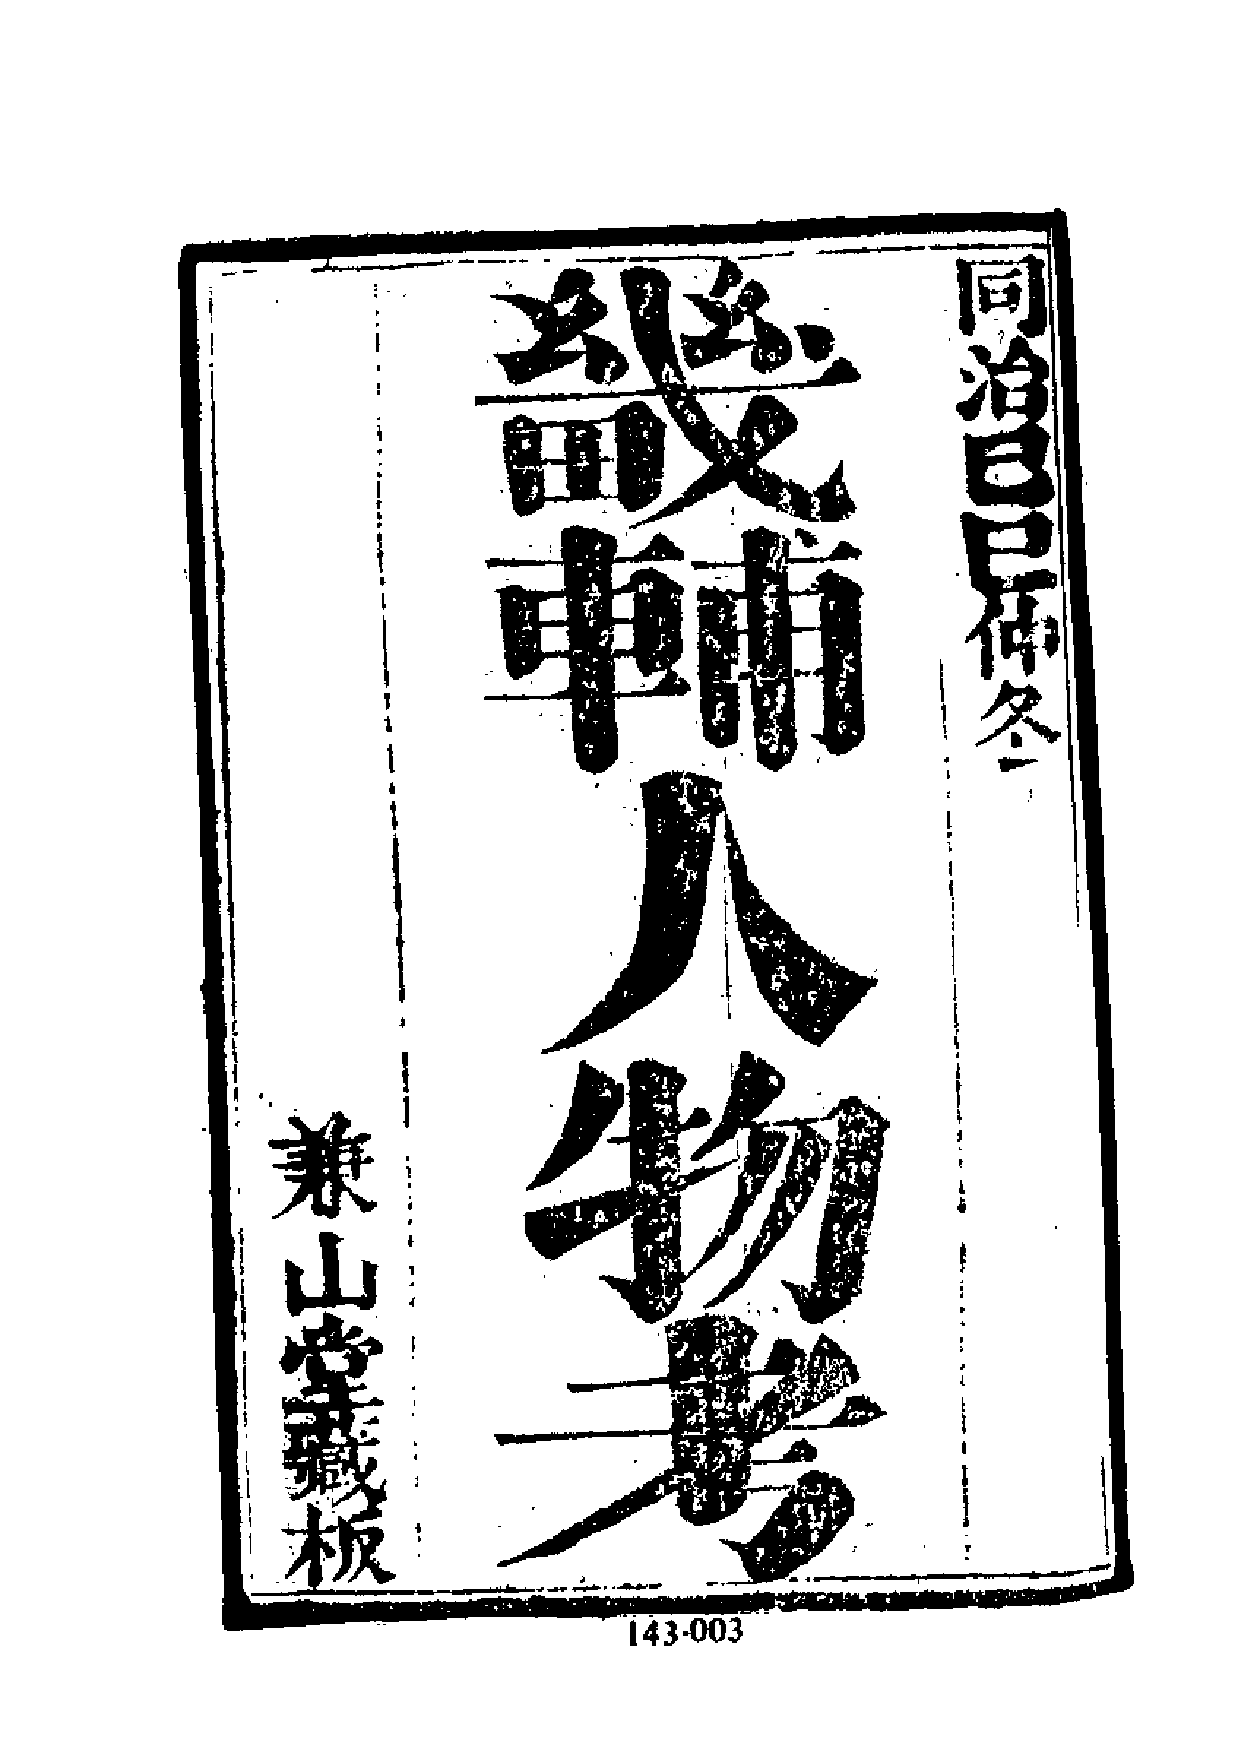 同治己巳仲冬
畿輔人物考
兼山堂藏板
143-003